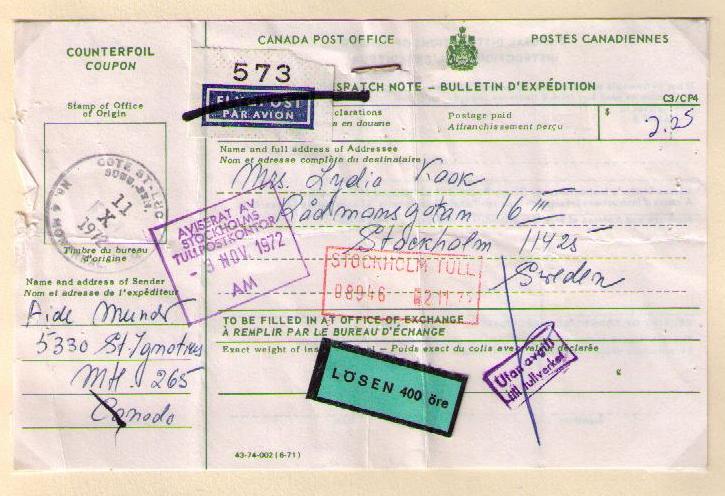 COUNTERFOIL
COUPON
Stamp of Office
of Origin
COTE ST-LUC
11
X
Timbre du bureau
d'origine
Name and address of Sender
Nom et adresse de l'expéditeur
5330 St. Ignatius
MH. 265
Canada
573
PAR AVION
CANADA POST OFFICE
POSTES CANADIENNES
NOTE – BULLETIN D'EXPÉDITION
C3/CP4
en douane
Postage paid
Affranchissement perçu
$
2.25
Name and full address of Addressee
Nom et adresse complète du destinataire
Mrs. Lydia Kook
Rådmansgatan 16 III
Stockholm 11425
Sweden
AVISERAT AV
STOCKHOLMS
TULLPOSTKONTOR
NOV. 1972
AM
STOCKHOLM TULL
08946
TO BE FILLED IN AT OFFICE OF EXCHANGE
À REMPLIR PAR LE BUREAU D'ÉCHANGE
Exact weight of
Poids exact du colis avec valeur déclarée
LÖSEN 400 öre
Utan avgift
till tullverket
43-74-002 (6-71)